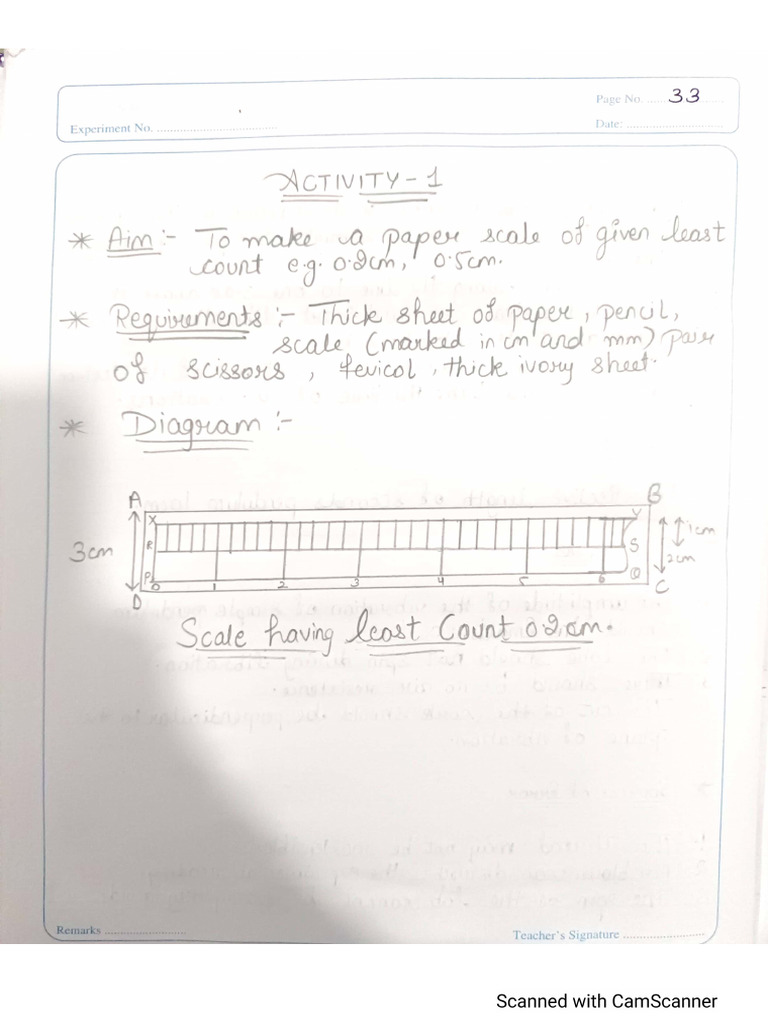 Page No. ...... 33
Experiment No. ....................................
Date: .............................
ACTIVITY - 1
* Aim :- To make a paper scale of given least
count e.g. 0.2cm, 0.5cm.
* Requirements :- Thick sheet of paper, pencil,
scale (marked in cm and mm) pair
of scissors, fevicol, thick ivory sheet.
* Diagram :-
A B
X Y
3cm R S 1cm
2cm
P Q
0 1 2 3 4 5 6
D C
Scale having least Count 0.2cm.
Remarks ...........................
Teacher's Signature ..........................
Scanned with CamScanner